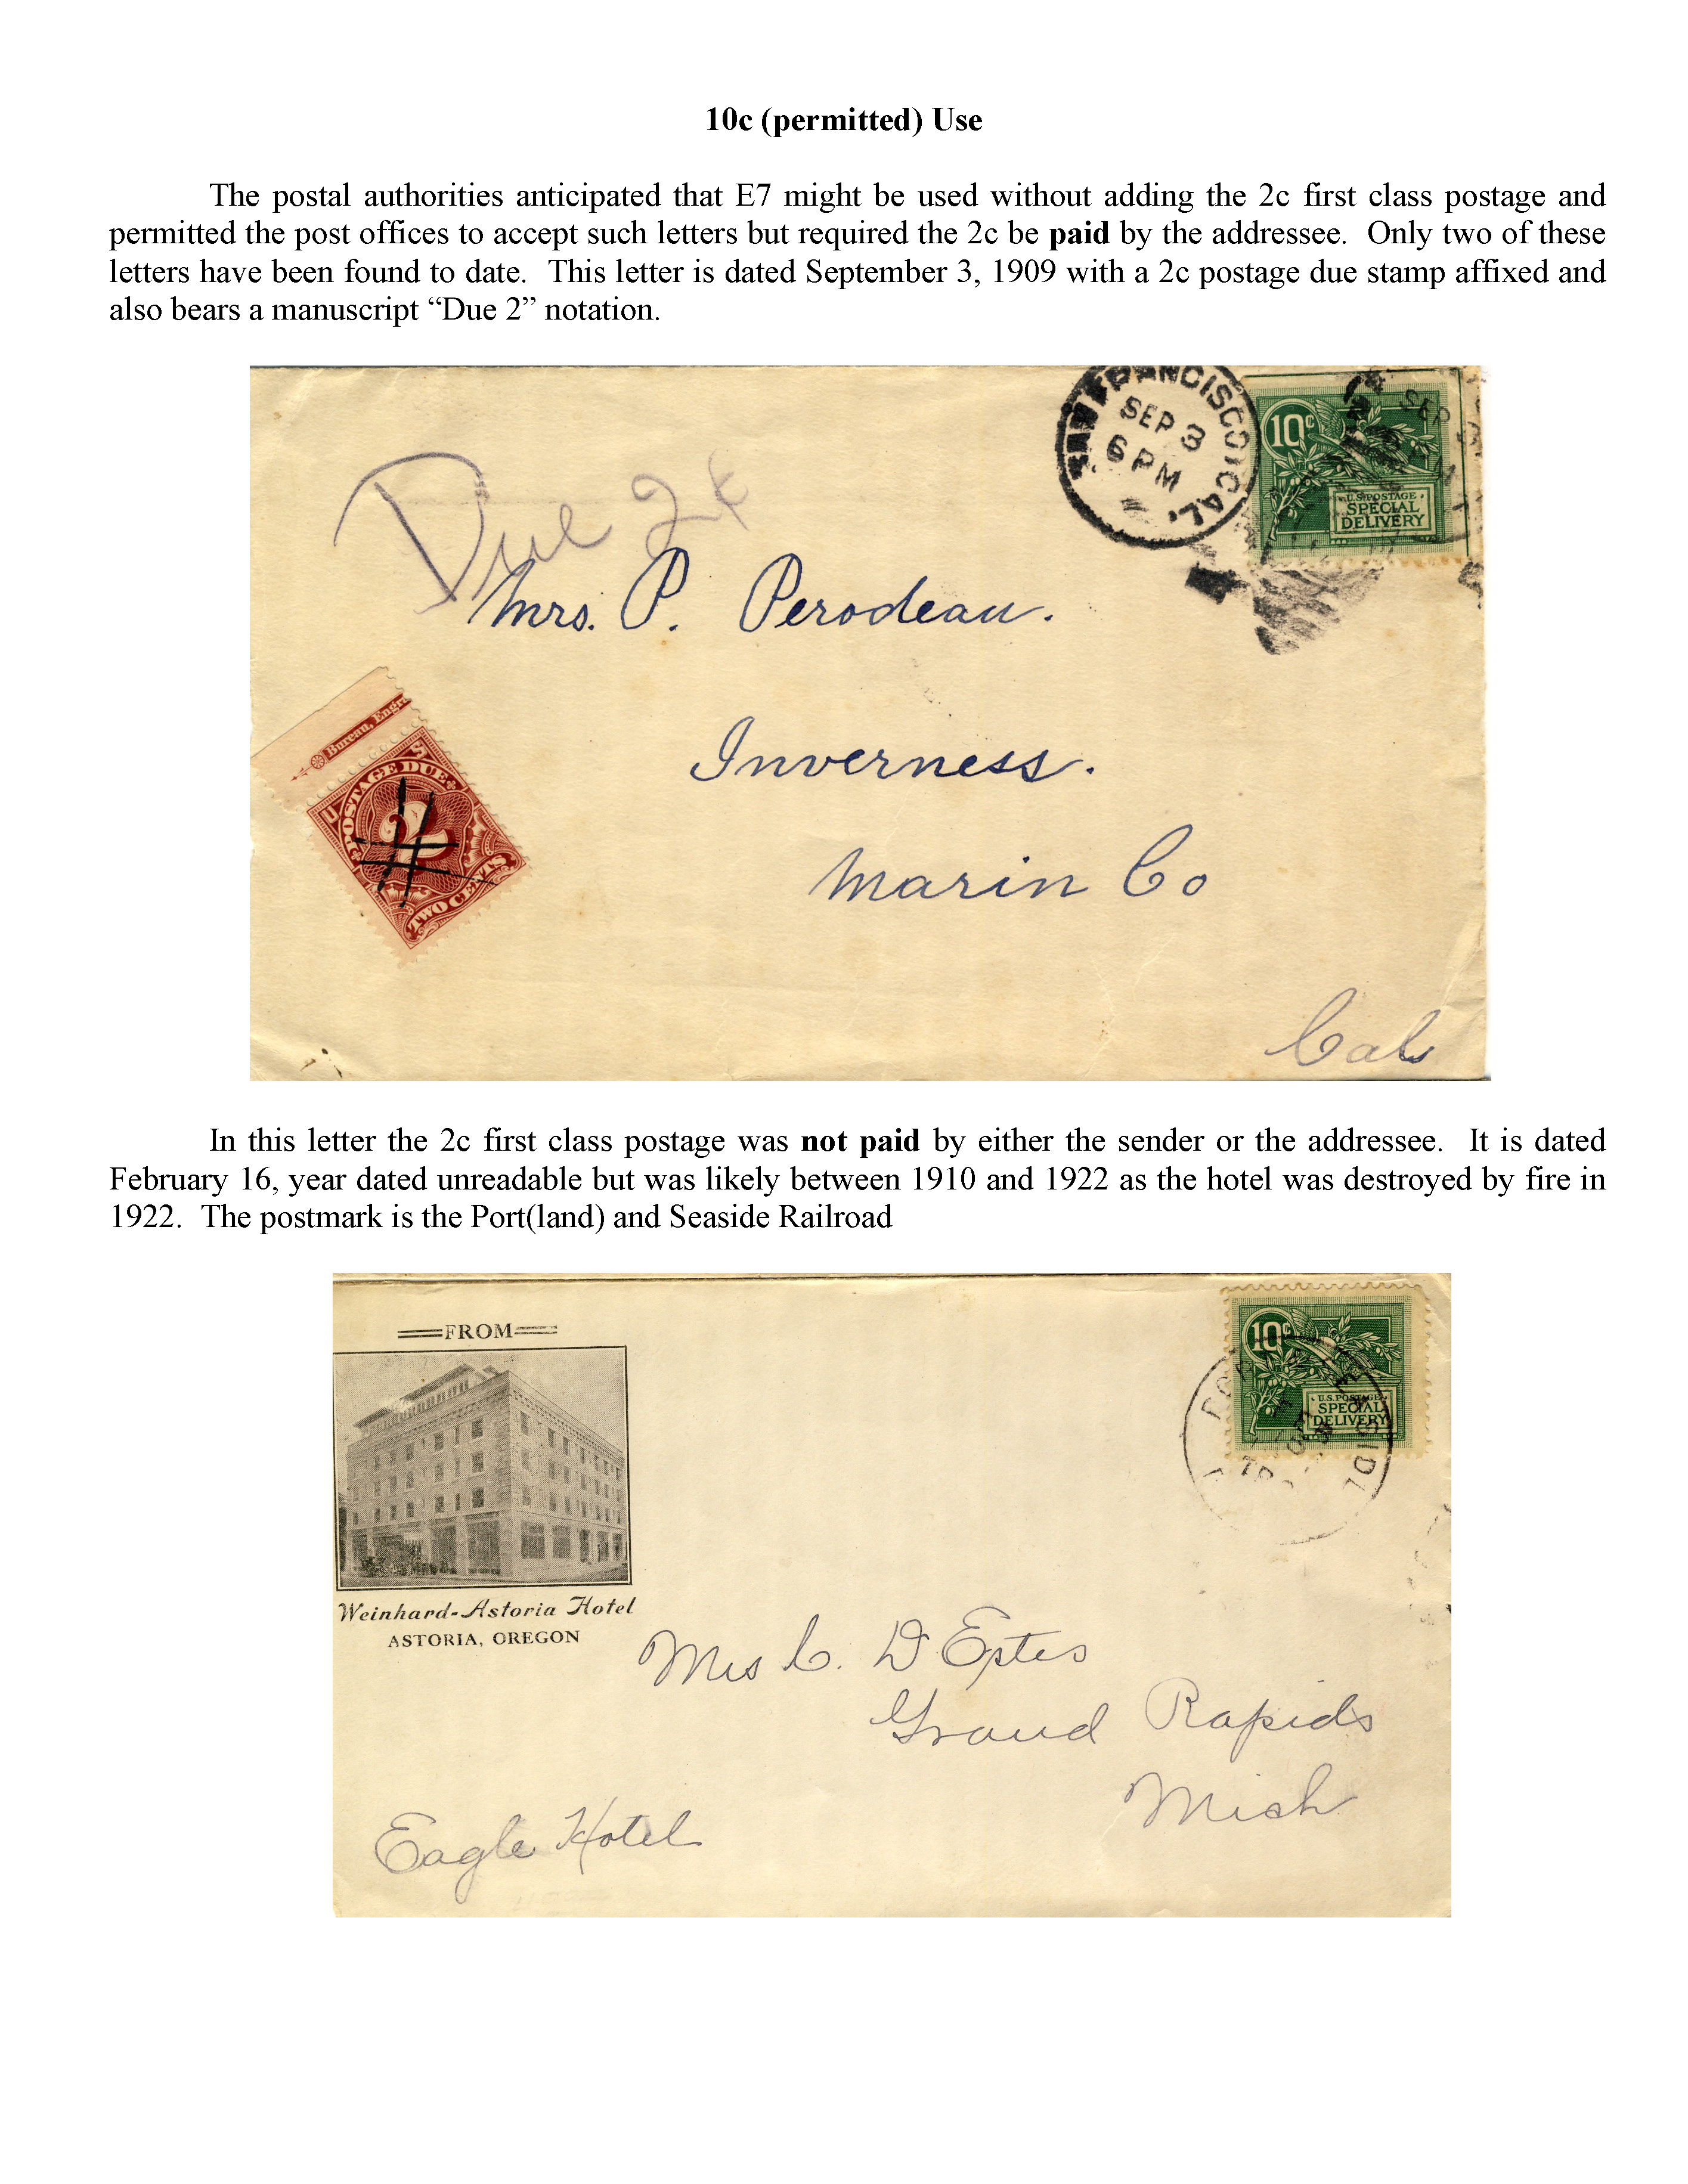 10c (permitted) Use
The postal authorities anticipated that E7 might be used without adding the 2c first class postage and
permitted the post offices to accept such letters but required the 2c be paid by the addressee. Only two of these
letters have been found to date. This letter is dated September 3, 1909 with a 2c postage due stamp affixed and
also bears a manuscript “Due 2” notation.
SAN FRANCISCO, CAL.
SEP 3
6 PM
10c
U.S. POSTAGE
SPECIAL
DELIVERY
Due 2¢
Mrs. P. Perodeau.
Bureau, Engr
U S
POSTAGE DUE
2
TWO CENTS
Inverness.
Marin Co
Cal
In this letter the 2c first class postage was not paid by either the sender or the addressee. It is dated
February 16, year dated unreadable but was likely between 1910 and 1922 as the hotel was destroyed by fire in
1922. The postmark is the Port(land) and Seaside Railroad
FROM
10c
U.S. POSTAGE
SPECIAL
DELIVERY
Weinhard-Astoria Hotel
ASTORIA, OREGON
Mrs C. D Estes
Grand Rapids
Mich
Eagle Hotel